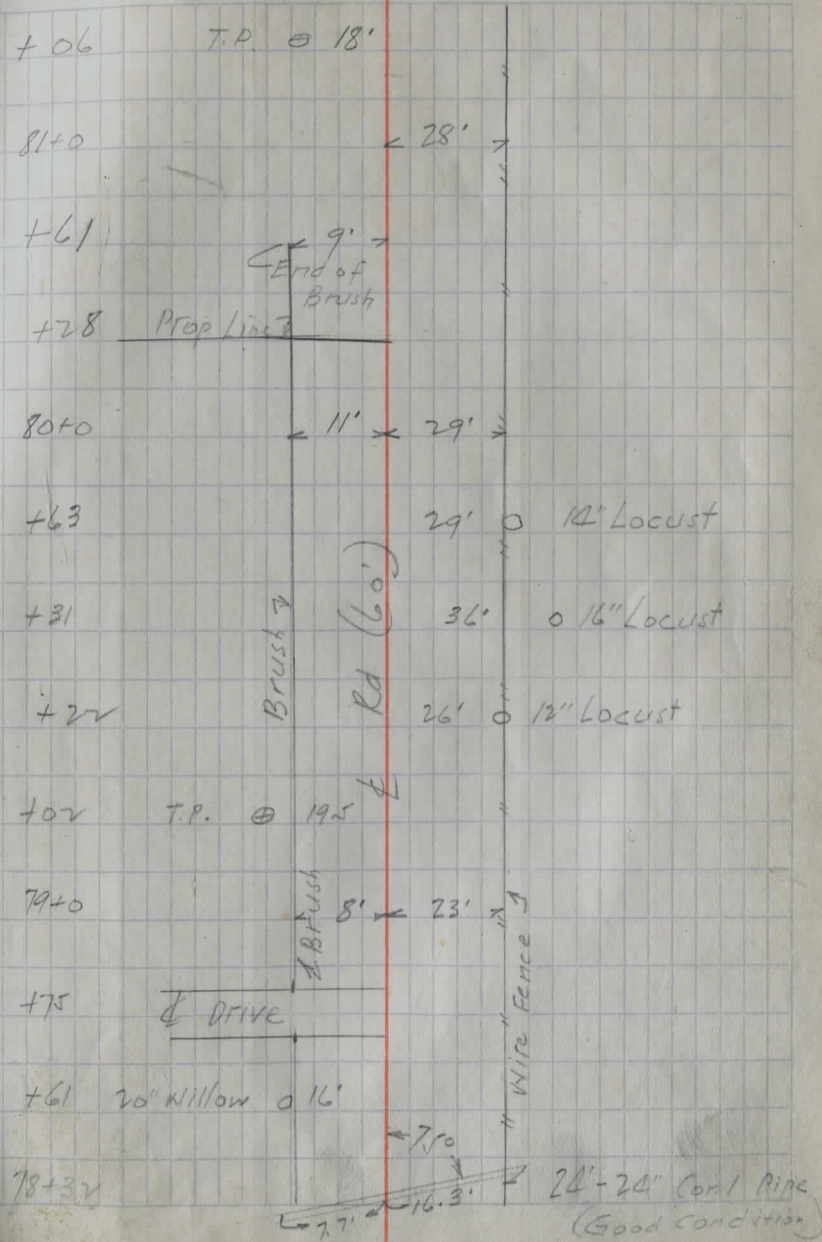 +06 T.P. ⊕ 18'
81+0 28'
+61 9'
End of
Brush
+28 Prop Line
80+0 11' 29'
+63 29' 14" Locust
+31 36' 16" Locust
+22 26' 12" Locust
Brush
℄ Rd (60')
+02 T.P. ⊕ 19.5
79+0 8' 23'
Brush
Wire Fence
+75 ℄ Drive
+61 20" Willow 16'
75°
78+32 24'-24" Pipe
7.7' 16.3'
(Good Condition)